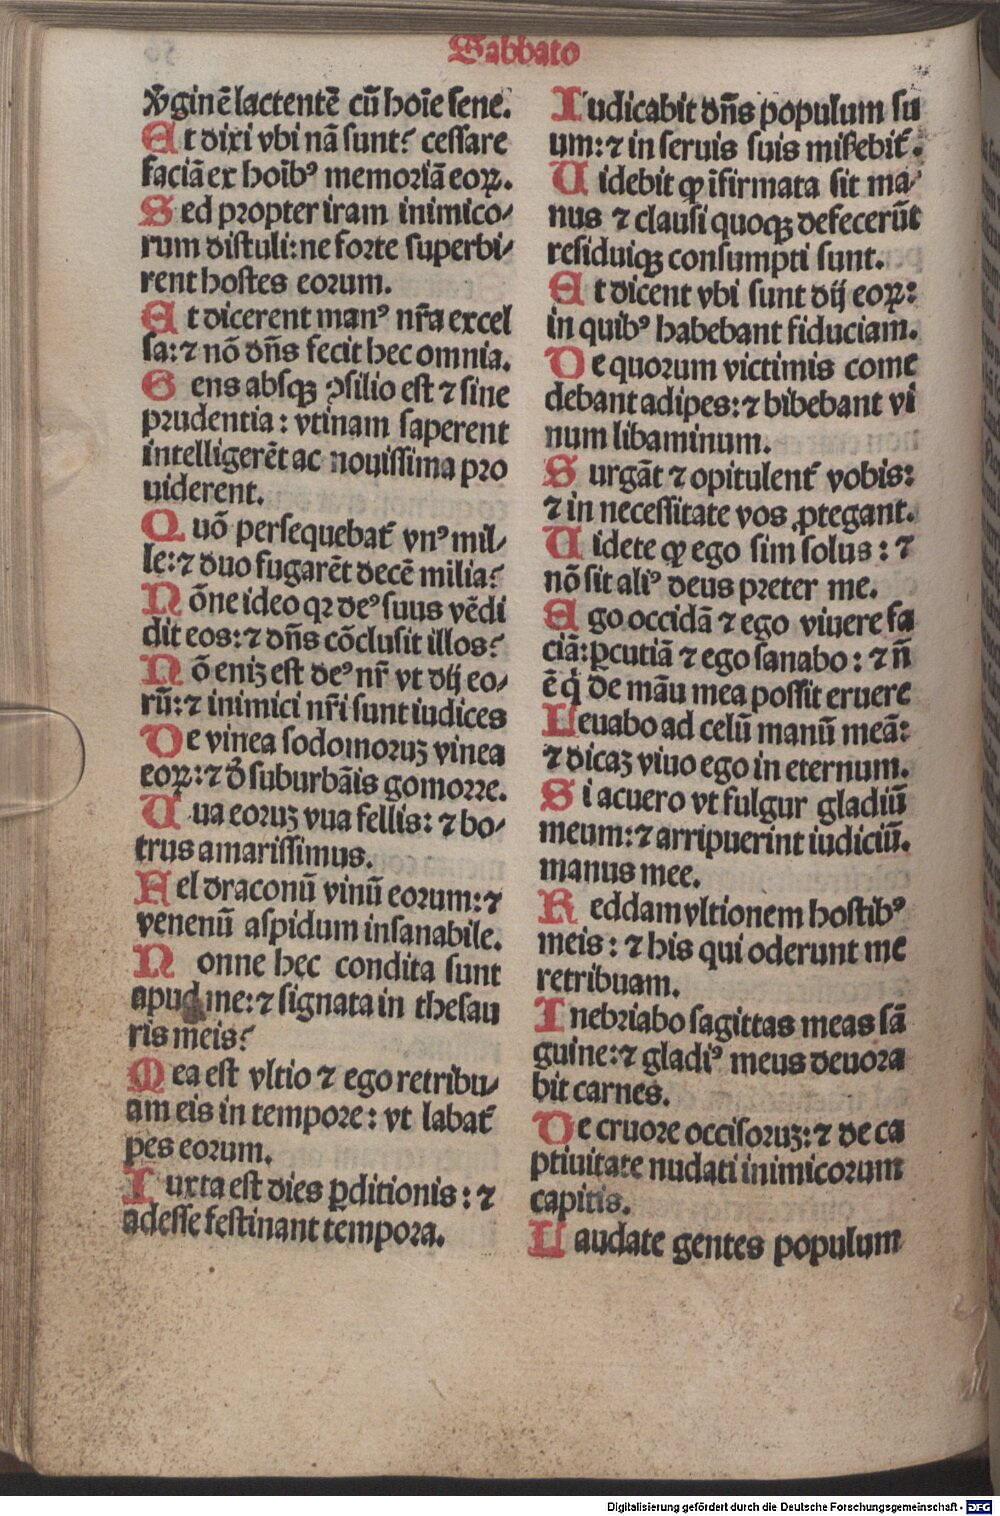 Sabbato
v̉ginē lactentē cū hoīe sene.
Et dixi vbi nā sunt? cessare
faciā ex hoībꝰ memoriā eoꝝ.
Sed propter iram inimico⸗
rum distuli: ne forte superbi⸗
rent hostes eorum.
Et dicerent manꝰ nr̄a excel
sa: ⁊ nō dn̄s fecit hec omnia.
Gens absqꝫ ꝯsilio est ⁊ sine
prudentia: vtinam saperent
intelligerēt ac nouissima pro
uiderent.
Quō persequebat᷑ vnꝰ mil⸗
le: ⁊ duo fugarēt decē milia?
Nōne ideo qꝛ deꝰ suus vēdi
dit eos: ⁊ dn̄s cōclusit illos?
Nō eniꝫ est deꝰ nr̄ vt dij eo⸗
rū: ⁊ inimici nr̄i sunt iudices
De vinea sodomoruꝫ vinea
eoꝝ: ⁊ đ suburbāis gomorre.
Uua eoruꝫ vua fellis: ⁊ bo⸗
trus amarissimus.
Fel draconū vinū eorum: ⁊
venenū aspidum insanabile.
Nonne hec condita sunt
apud me: ⁊ signata in thesau
ris meis?
Mea est vltio ⁊ ego retribu⸗
am eis in tempore: vt labat᷑
pes eorum.
Iuxta est dies ꝑditionis: ⁊
adesse festinant tempora.
Iudicabit dn̄s populum su
um: ⁊ in seruis suis miẜebit᷑.
Uidebit ꝙ īfirmata sit ma⸗
nus ⁊ clausi quoqꝫ defecerūt
residuiqꝫ consumpti sunt.
Et dicent vbi sunt dij eoꝝ:
in quibꝰ habebant fiduciam.
De quorum victimis come
debant adipes: ⁊ bibebant vi
num libaminum.
Surgāt ⁊ opitulent᷑ vobis:
⁊ in necessitate vos ꝓtegant.
Uidete ꝙ ego sim solus: ⁊
nō sit aliꝰ deus preter me.
Ego occidā ⁊ ego viuere fa
ciā: ꝑcutiā ⁊ ego sanabo: ⁊ n̄
ē q̇ de māu mea possit eruere
Leuabo ad celū manū meā:
⁊ dicaꝫ viuo ego in eternum.
Si acuero vt fulgur gladiū
meum: ⁊ arripuerint iudiciū.
manus mee.
Reddam vltionem hostibꝰ
meis: ⁊ his qui oderunt me
retribuam.
Inebriabo sagittas meas sā
guine: ⁊ gladiꝰ meus deuora
bit carnes.
De cruore occisoruꝫ: ⁊ de ca
ptiuitate nudati inimicorum
capitis.
Laudate gentes populum
Digitalisierung gefördert durch die Deutsche Forschungsgemeinschaft - DFG